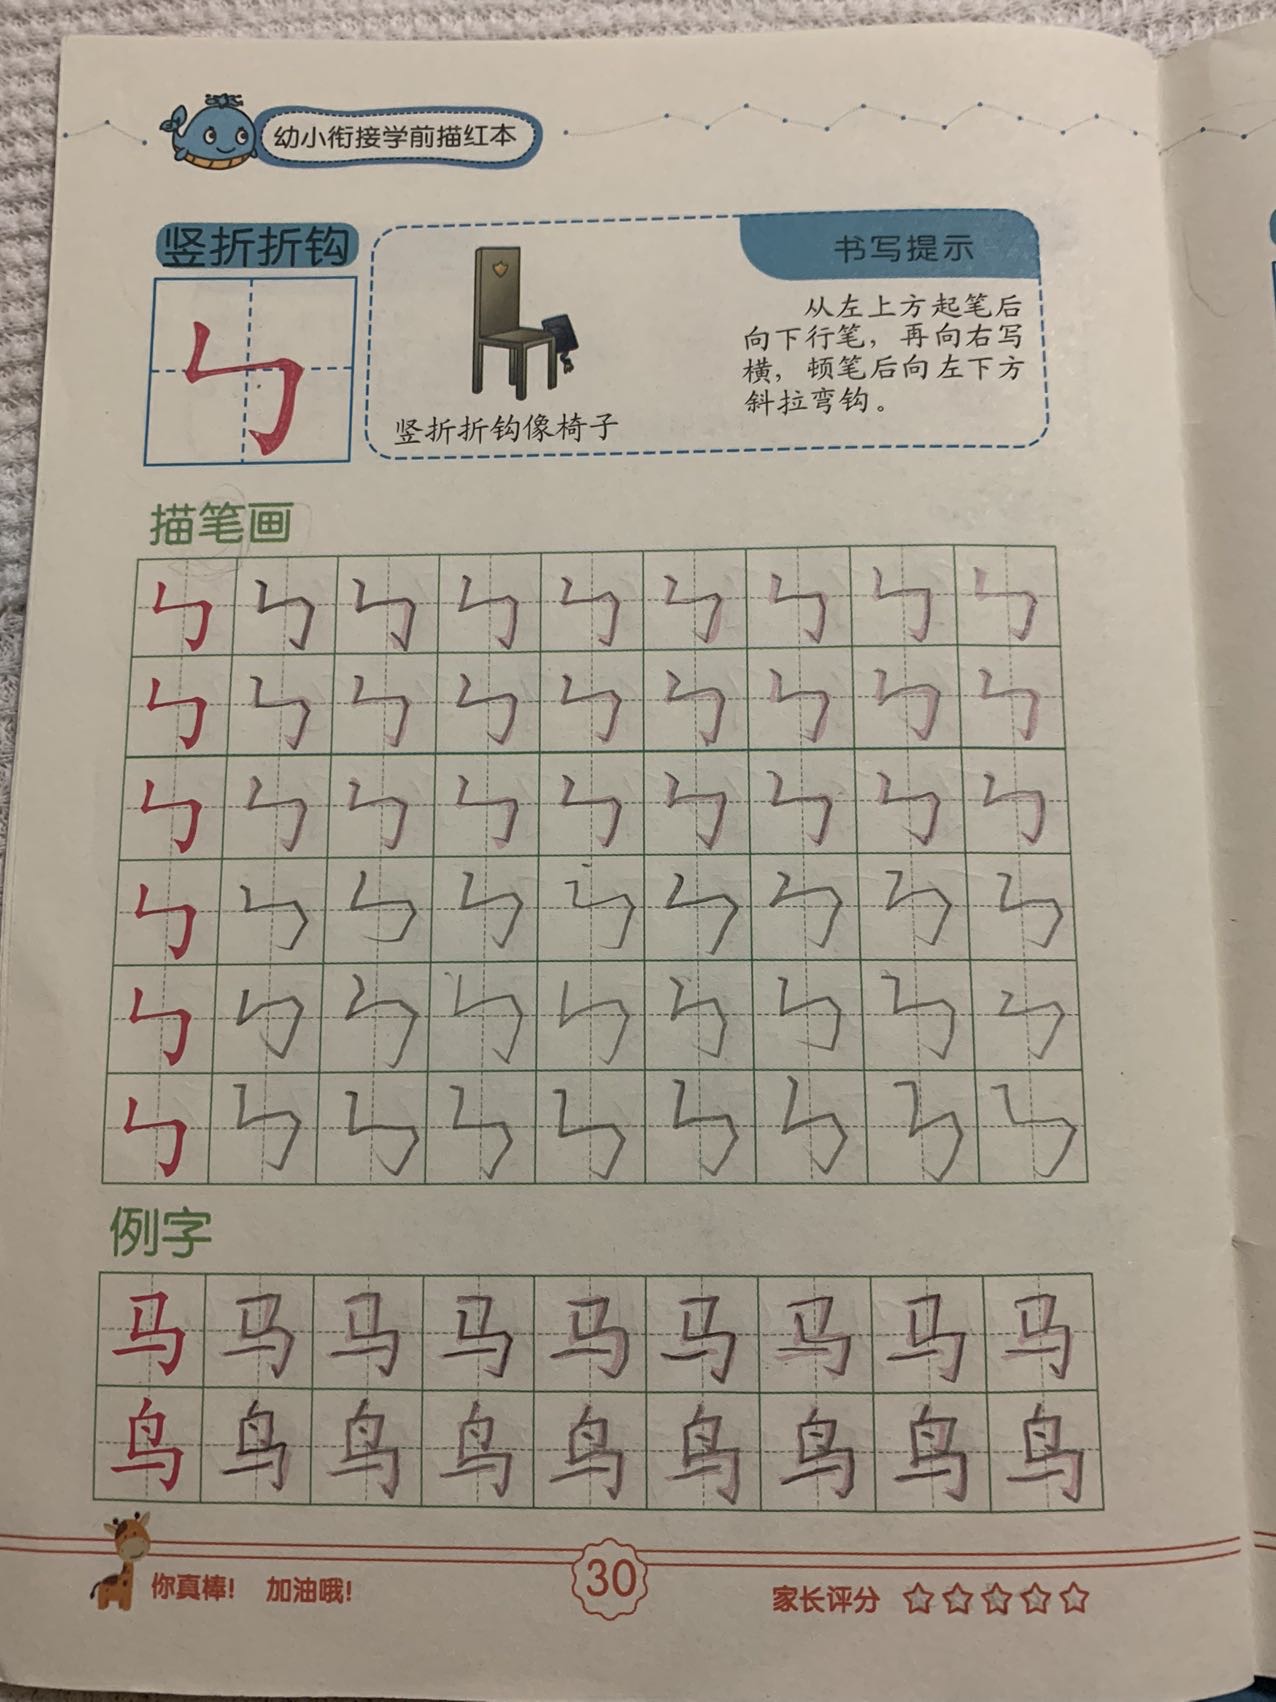 幼小衔接学前描红本
竖折折钩
书写提示
从左上方起笔后
向下行笔，再向右写
横，顿笔后向左下方
斜拉弯钩。
竖折折钩像椅子
㇉
描笔画
㇉ ㇉ ㇉ ㇉ ㇉ ㇉ ㇉ ㇉ ㇉
㇉ ㇉ ㇉ ㇉ ㇉ ㇉ ㇉ ㇉ ㇉
㇉ ㇉ ㇉ ㇉ ㇉ ㇉ ㇉ ㇉ ㇉
㇉ ㇉ ㇉ ㇉ ㇉ ㇉ ㇉ ㇉ ㇉
㇉ ㇉ ㇉ ㇉ ㇉ ㇉ ㇉ ㇉ ㇉
㇉ ㇉ ㇉ ㇉ ㇉ ㇉ ㇉ ㇉ ㇉
例字
马 马 马 马 马 马 马 马 马
鸟 鸟 鸟 鸟 鸟 鸟 鸟 鸟 鸟
你真棒！ 加油哦！
30
家长评分 ☆☆☆☆☆